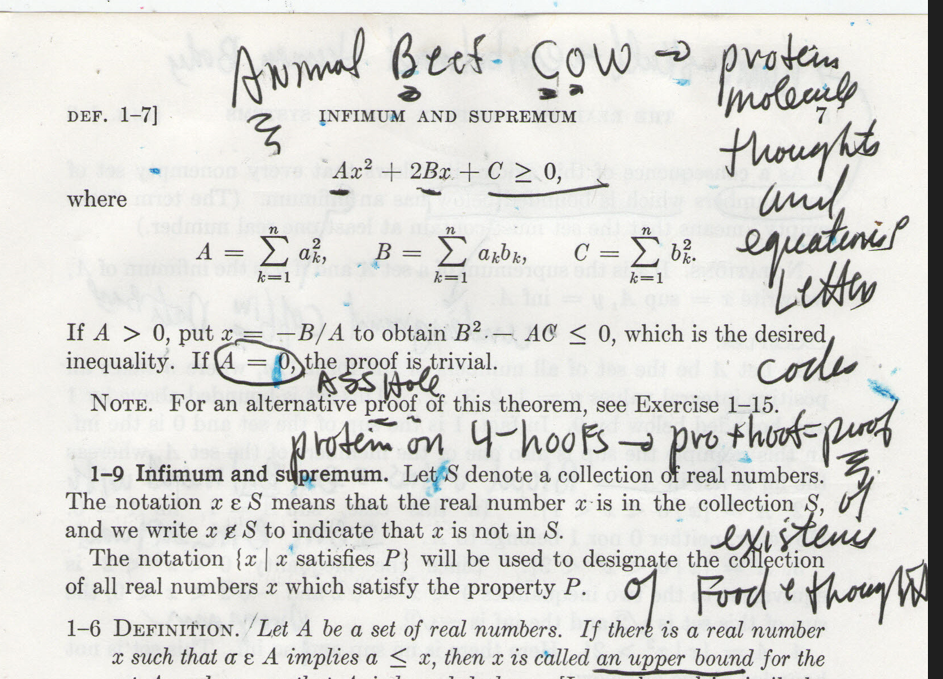 Animal Beef Cow → protein
molecule
DEF. 1–7] INFIMUM AND SUPREMUM 7
thoughts
Ax² + 2Bx + C ≥ 0,
and
where
equations
A = ∑ₖ₌₁ⁿ aₖ², B = ∑ₖ₌₁ⁿ aₖbₖ, C = ∑ₖ₌₁ⁿ bₖ².
Letters
If A > 0, put x = −B/A to obtain B² − AC ≤ 0, which is the desired
inequality. If A = 0, the proof is trivial.
codes
ASS Hole
NOTE. For an alternative proof of this theorem, see Exercise 1–15.
protein on 4-hoofs → pro + hoof = proof
1–9 Infimum and supremum. Let S denote a collection of real numbers.
The notation x ε S means that the real number x is in the collection S,
of
and we write x ɇ S to indicate that x is not in S.
The notation {x | x satisfies P} will be used to designate the collection
of all real numbers x which satisfy the property P.
of Food thought
1–6 DEFINITION. Let A be a set of real numbers. If there is a real number
x such that a ε A implies a ≤ x, then x is called an upper bound for the